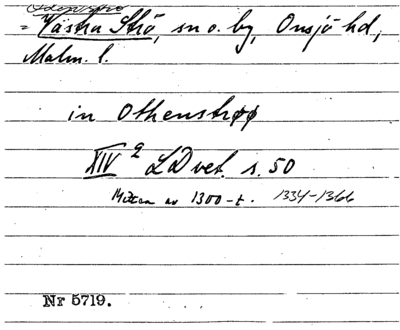 Odenströ
= Västra Strö, sn o. by, Onsjö hd,
Malm. l.
in Othenstrøø
XIV 2 LDvet. s. 50
Mitten av 1300-t. 1334-1366
Nr 5719.